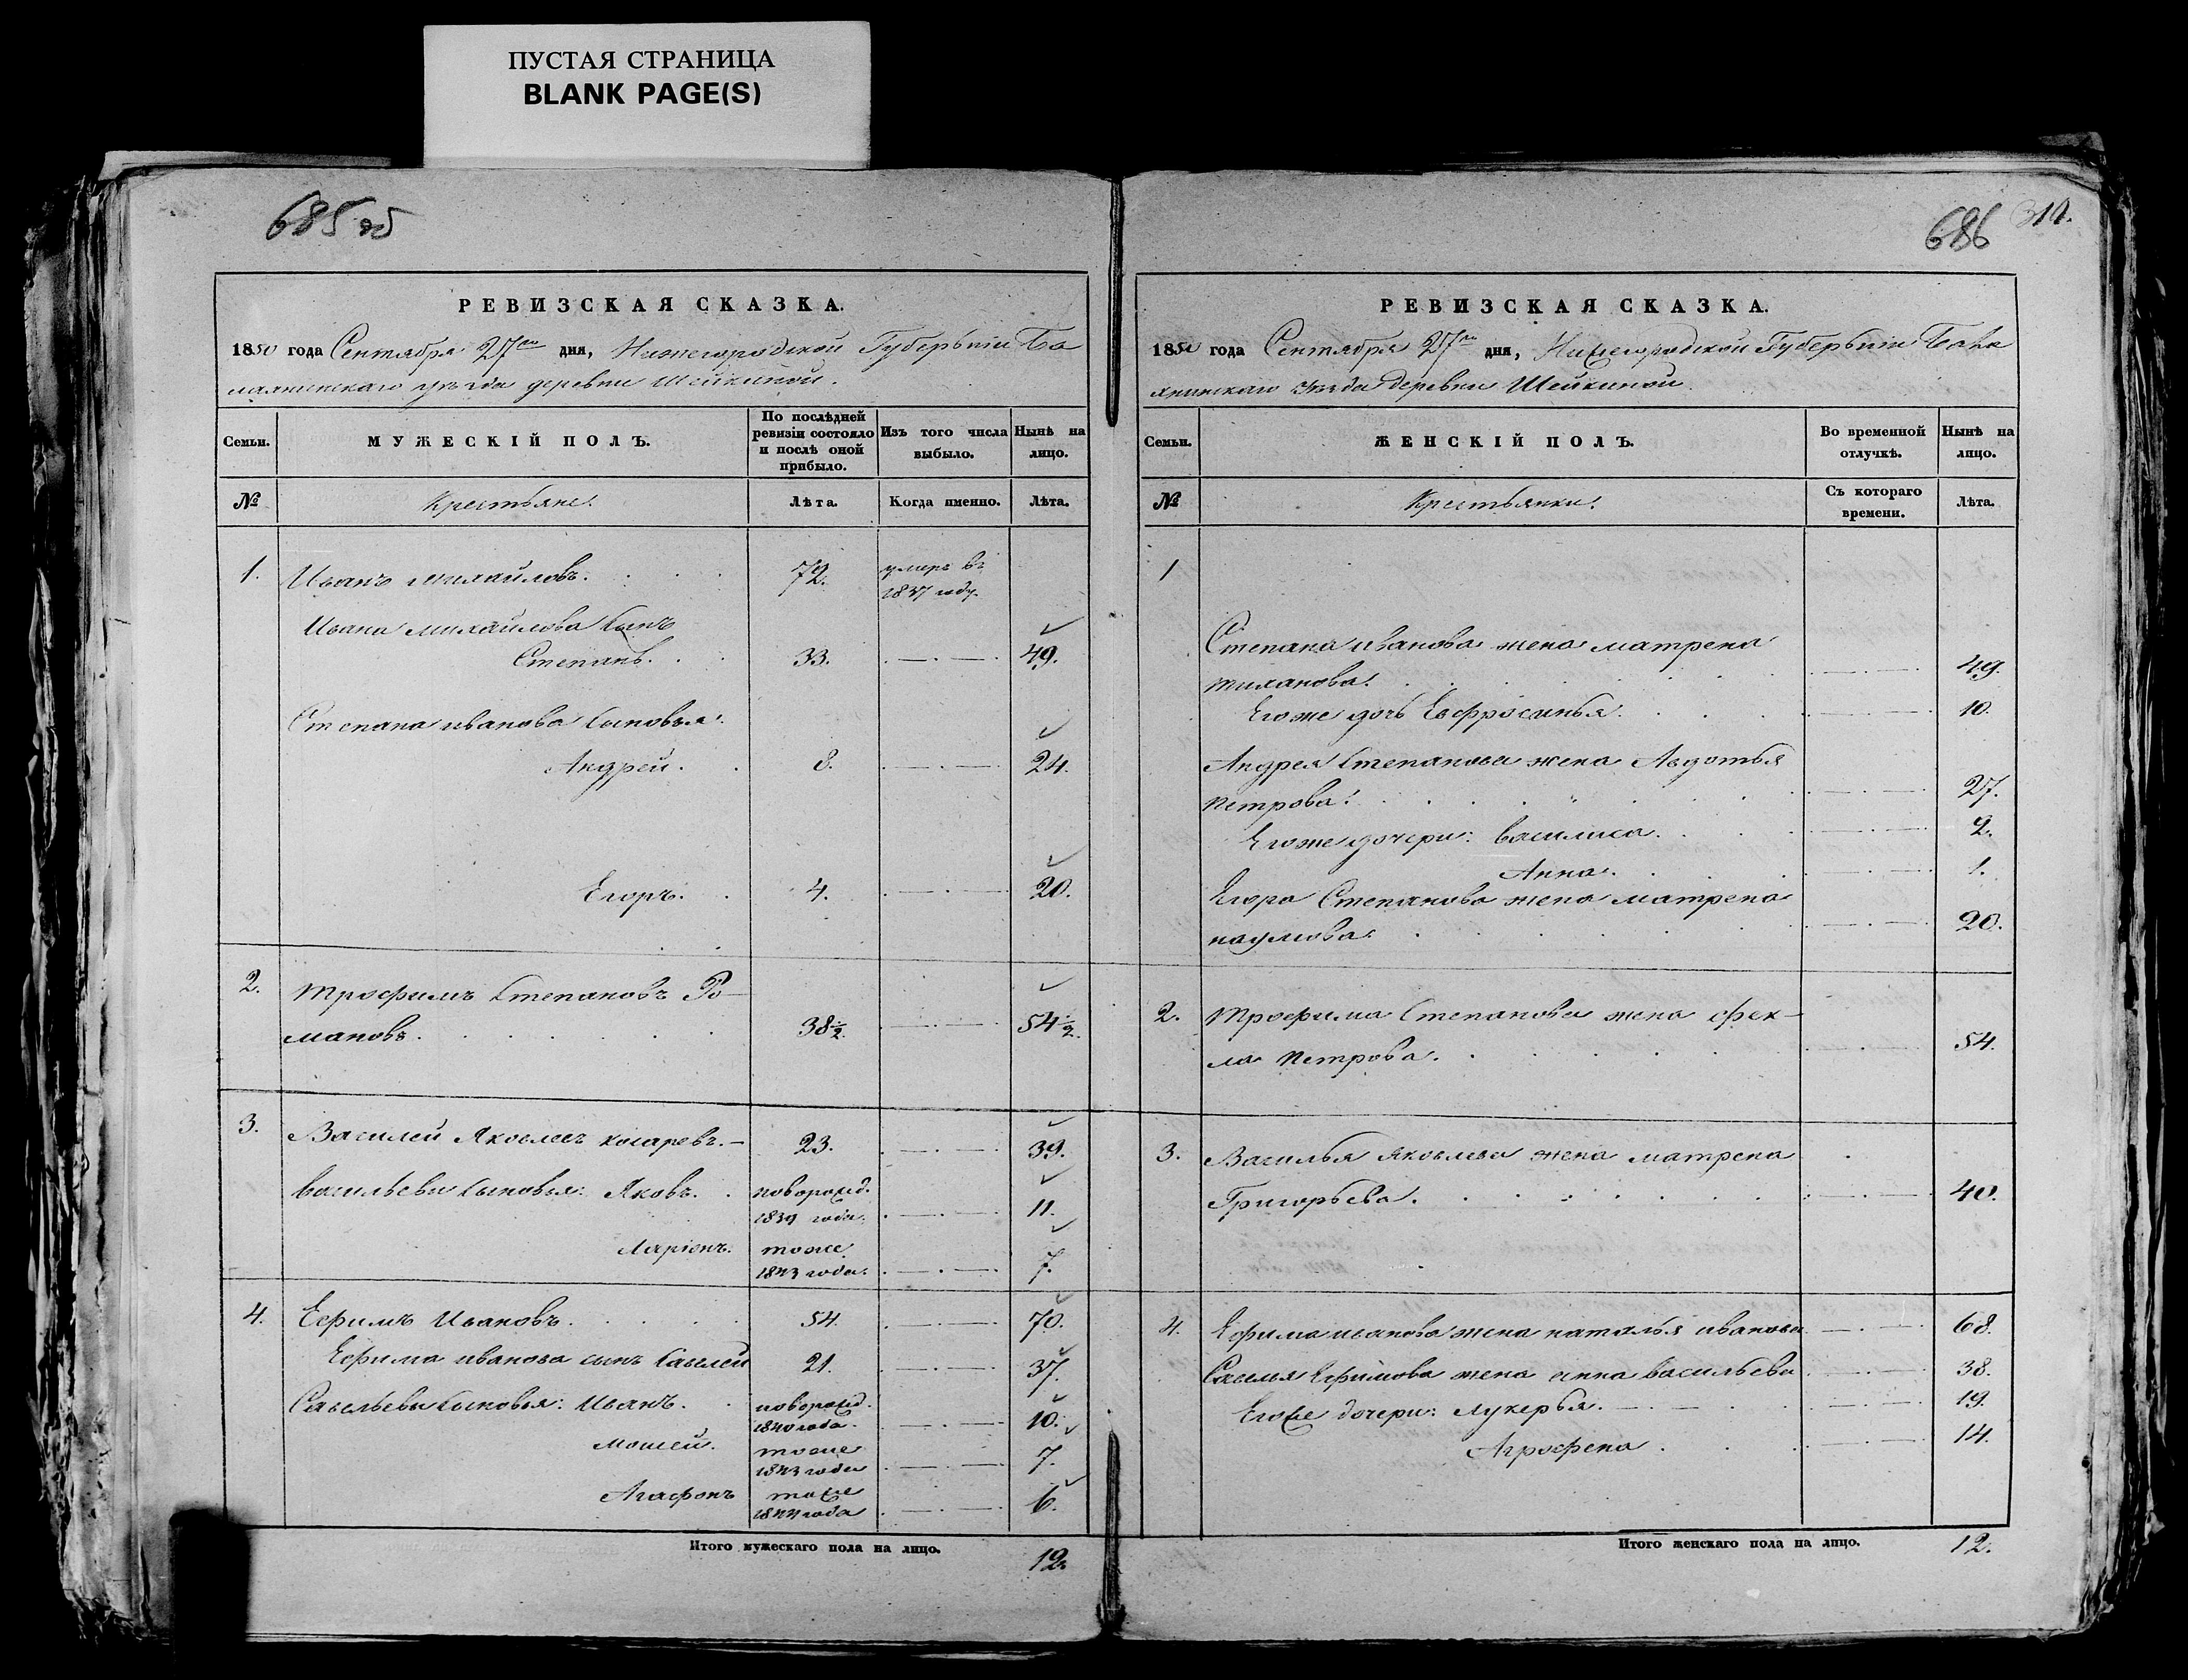 ПУСТАЯ СТРАНИЦА
BLANK PAGE(S)
685 об
РЕВИЗСКАЯ СКАЗКА.
1850 года Сентября 27го дня, Нижегородской Губерніи Ба
лахнинскаго уѣзда деревни Шейкиной.
Семьи.
МУЖЕСКІЙ ПОЛЪ.
По послѣдней ревизіи состояло и послѣ оной прибыло.
Изъ того числа выбыло.
Нынѣ на лицо.
№
Крестьяне.
Лѣта.
Когда именно.
Лѣта.
1. Иванъ михайловъ. 72. умеръ въ
1837 году.
Ивана михайлова сынъ
Степанъ. 33. 49.
Степана иванова сыновья:
Андрей. 8. 24.
Егоръ. 4. 20.
2. Трофимъ Степановъ Ро-
мановъ. 38½. 54½.
3. Василей Яковлевъ косаревъ. 23. 39.
Васильевы сыновья: Яковъ. новорожд.
1839 года. 11.
Ларіонъ. тоже
1843 года. 7.
4. Ефимъ Ивановъ. 54. 70.
Ефима иванова сынъ Савелей 21. 37.
Савельевы сыновья: Иванъ. новорожд.
1840 года. 10.
Мосей. тоже
1843 года 7.
Агафонъ тоже
1844 года 6.
Итого мужескаго пола на лицо. 12.
686
РЕВИЗСКАЯ СКАЗКА.
1850 года Сентября 27го дня, Нижегородской Губерніи Балах
нинскаго уѣзда деревни Шейкиной.
Семьи.
ЖЕНСКІЙ ПОЛЪ.
Во временной отлучкѣ.
Нынѣ на лицо.
№
Крестьянки.
Съ котораго времени.
Лѣта.
1
Степана иванова жена матрена
49.
Егоже дочь Евфросинья. 10.
Андрея Степанова жена Авдотья
Петрова. 27.
Егоже дочери: василиса. 2.
Анна. 1.
Егора Степанова жена матрена
наумова. 20.
2. Трофима Степанова жена фек-
ла Петрова. 54.
3. Василья Яковлева жена матрена
Григорьева. 40.
4. Ефима иванова жена наталья иванова 68.
Савелья Ефимова жена анна васильева 38.
Егоже дочери: лукерья. 19.
Агрофена 14.
Итого женскаго пола на лицо. 12.